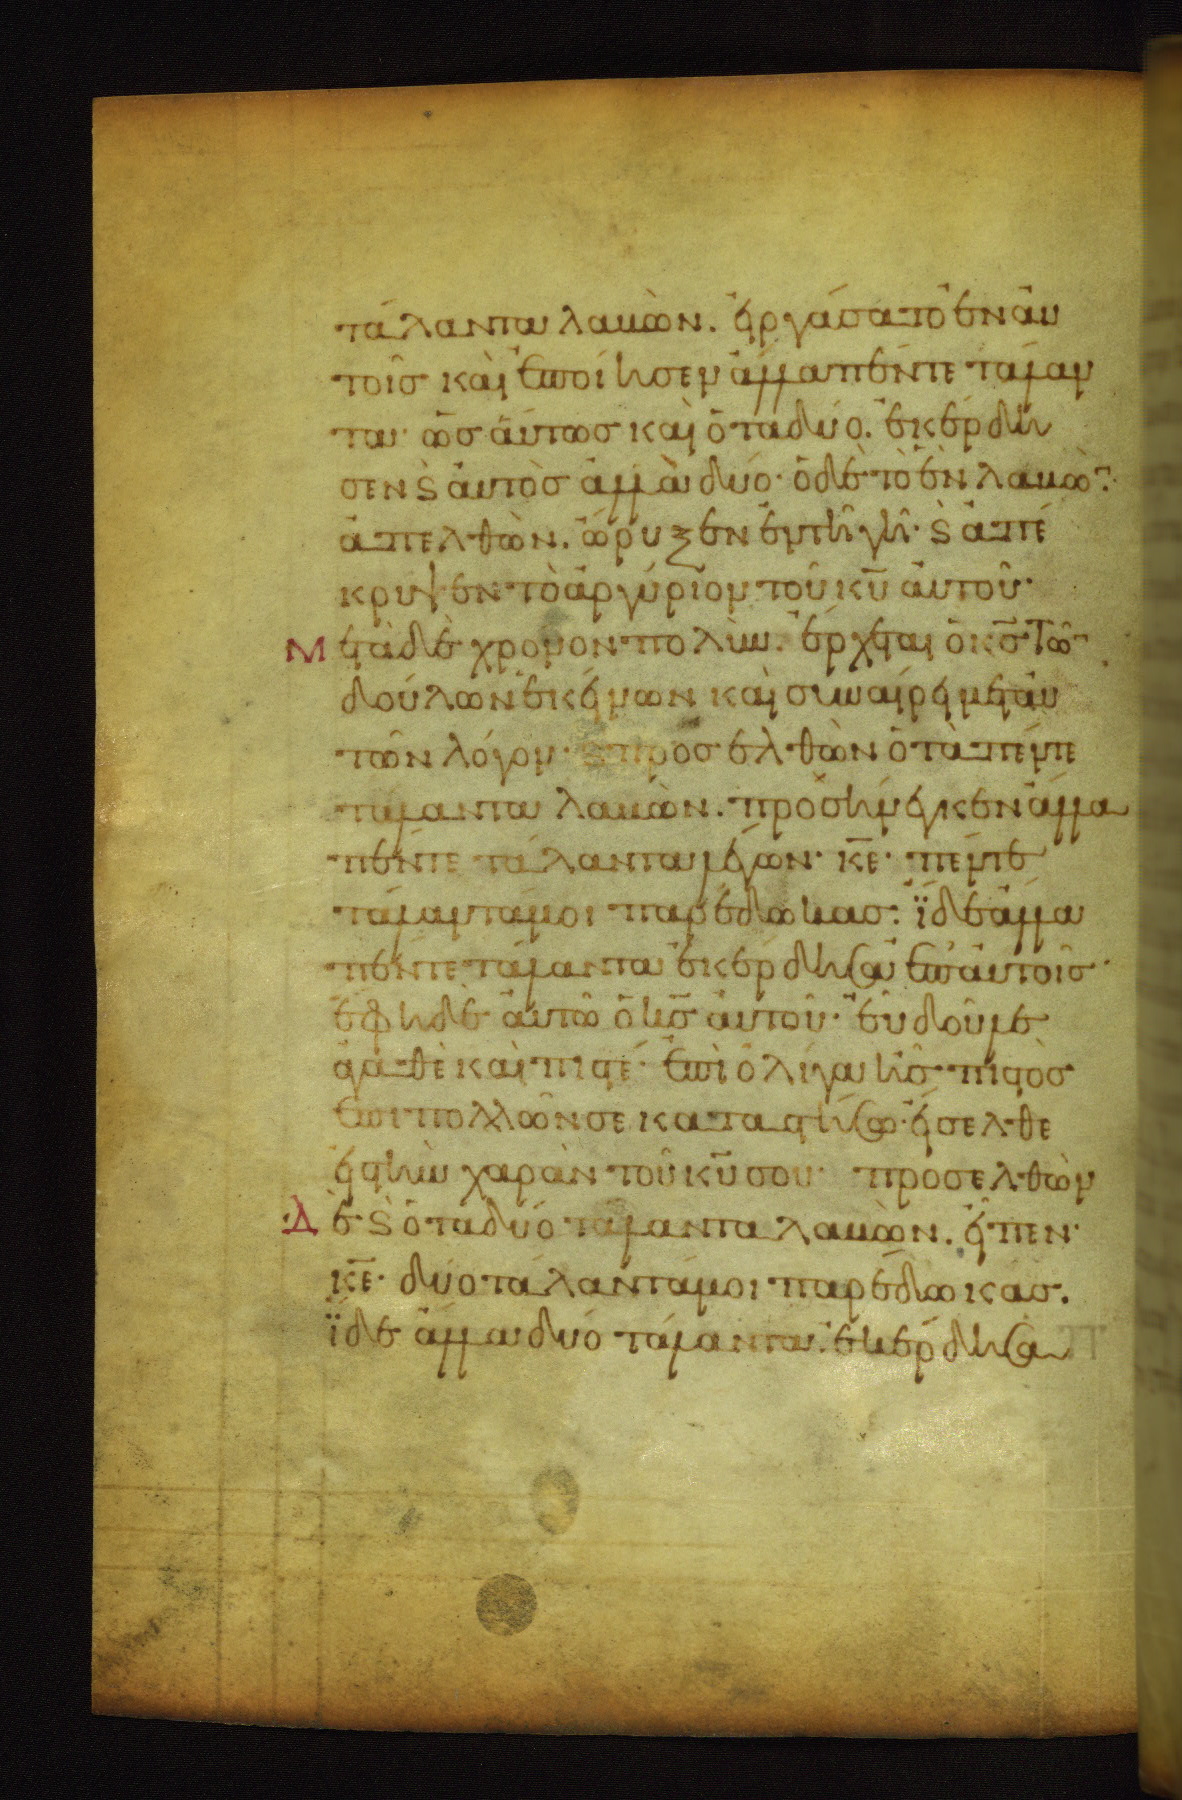 τάλαντα λαβὼν. εἰργάσατο ἐν αὐ
τοῖς καὶ ἐποίησεν ἄλλα πέντε τάλαν
τα· ὡσαύτως καὶ ὁ τὰ δύο. ἐκέρδη
σεν ϗ αὐτὸς ἄλλα δύο· ὁ δὲ τὸ ἓν λαβὼ̅.
ἀπελθὼν. ὤρυξεν ἐν τῆ γῆ· ϗ ἀπέ
κρυψεν τὸ ἀργύριον τοῦ κ̅υ̅ αὐτοῦ·
Μετὰ δὲ χρόνον πολὺν. ἔρχεται ὁ κ̅ς̅ τῶ̅
δούλων ἐκείνων καὶ συναίρει μετ' αὐ
τῶν λόγον· ϗ προσελθὼν ὁ τὰ πέντε
τάλαντα λαβὼν. προσήνεγκεν ἄλλα
πέντε τάλαντα λέγων· κ̅ε̅· πέντε
τάλαντά μοι παρέδωκας· ἴδε ἄλλα
πέντε τάλαντα ἐκέρδησα ἐπ' αὐτοῖς·
ἔφη δὲ αὐτῶ ὁ κ̅ς̅ αὐτοῦ· εὖ δοῦλε
ἀγαθὲ καὶ πιστέ· ἐπὶ ὀλίγα ἦς πιστὸς
ἐπὶ πολλῶν σε καταστήσω· εἴσελθε
εἰς τὴν χαρὰν τοῦ κ̅υ̅ σου· προσελθὼν
δὲ ϗ ὁ τὰ δύο τάλαντα λαβὼν. εἶπεν·
κ̅ε̅· δύο τάλαντά μοι παρέδωκας.
ἴδε ἄλλα δύο τάλαντα. ἐκέρδησα